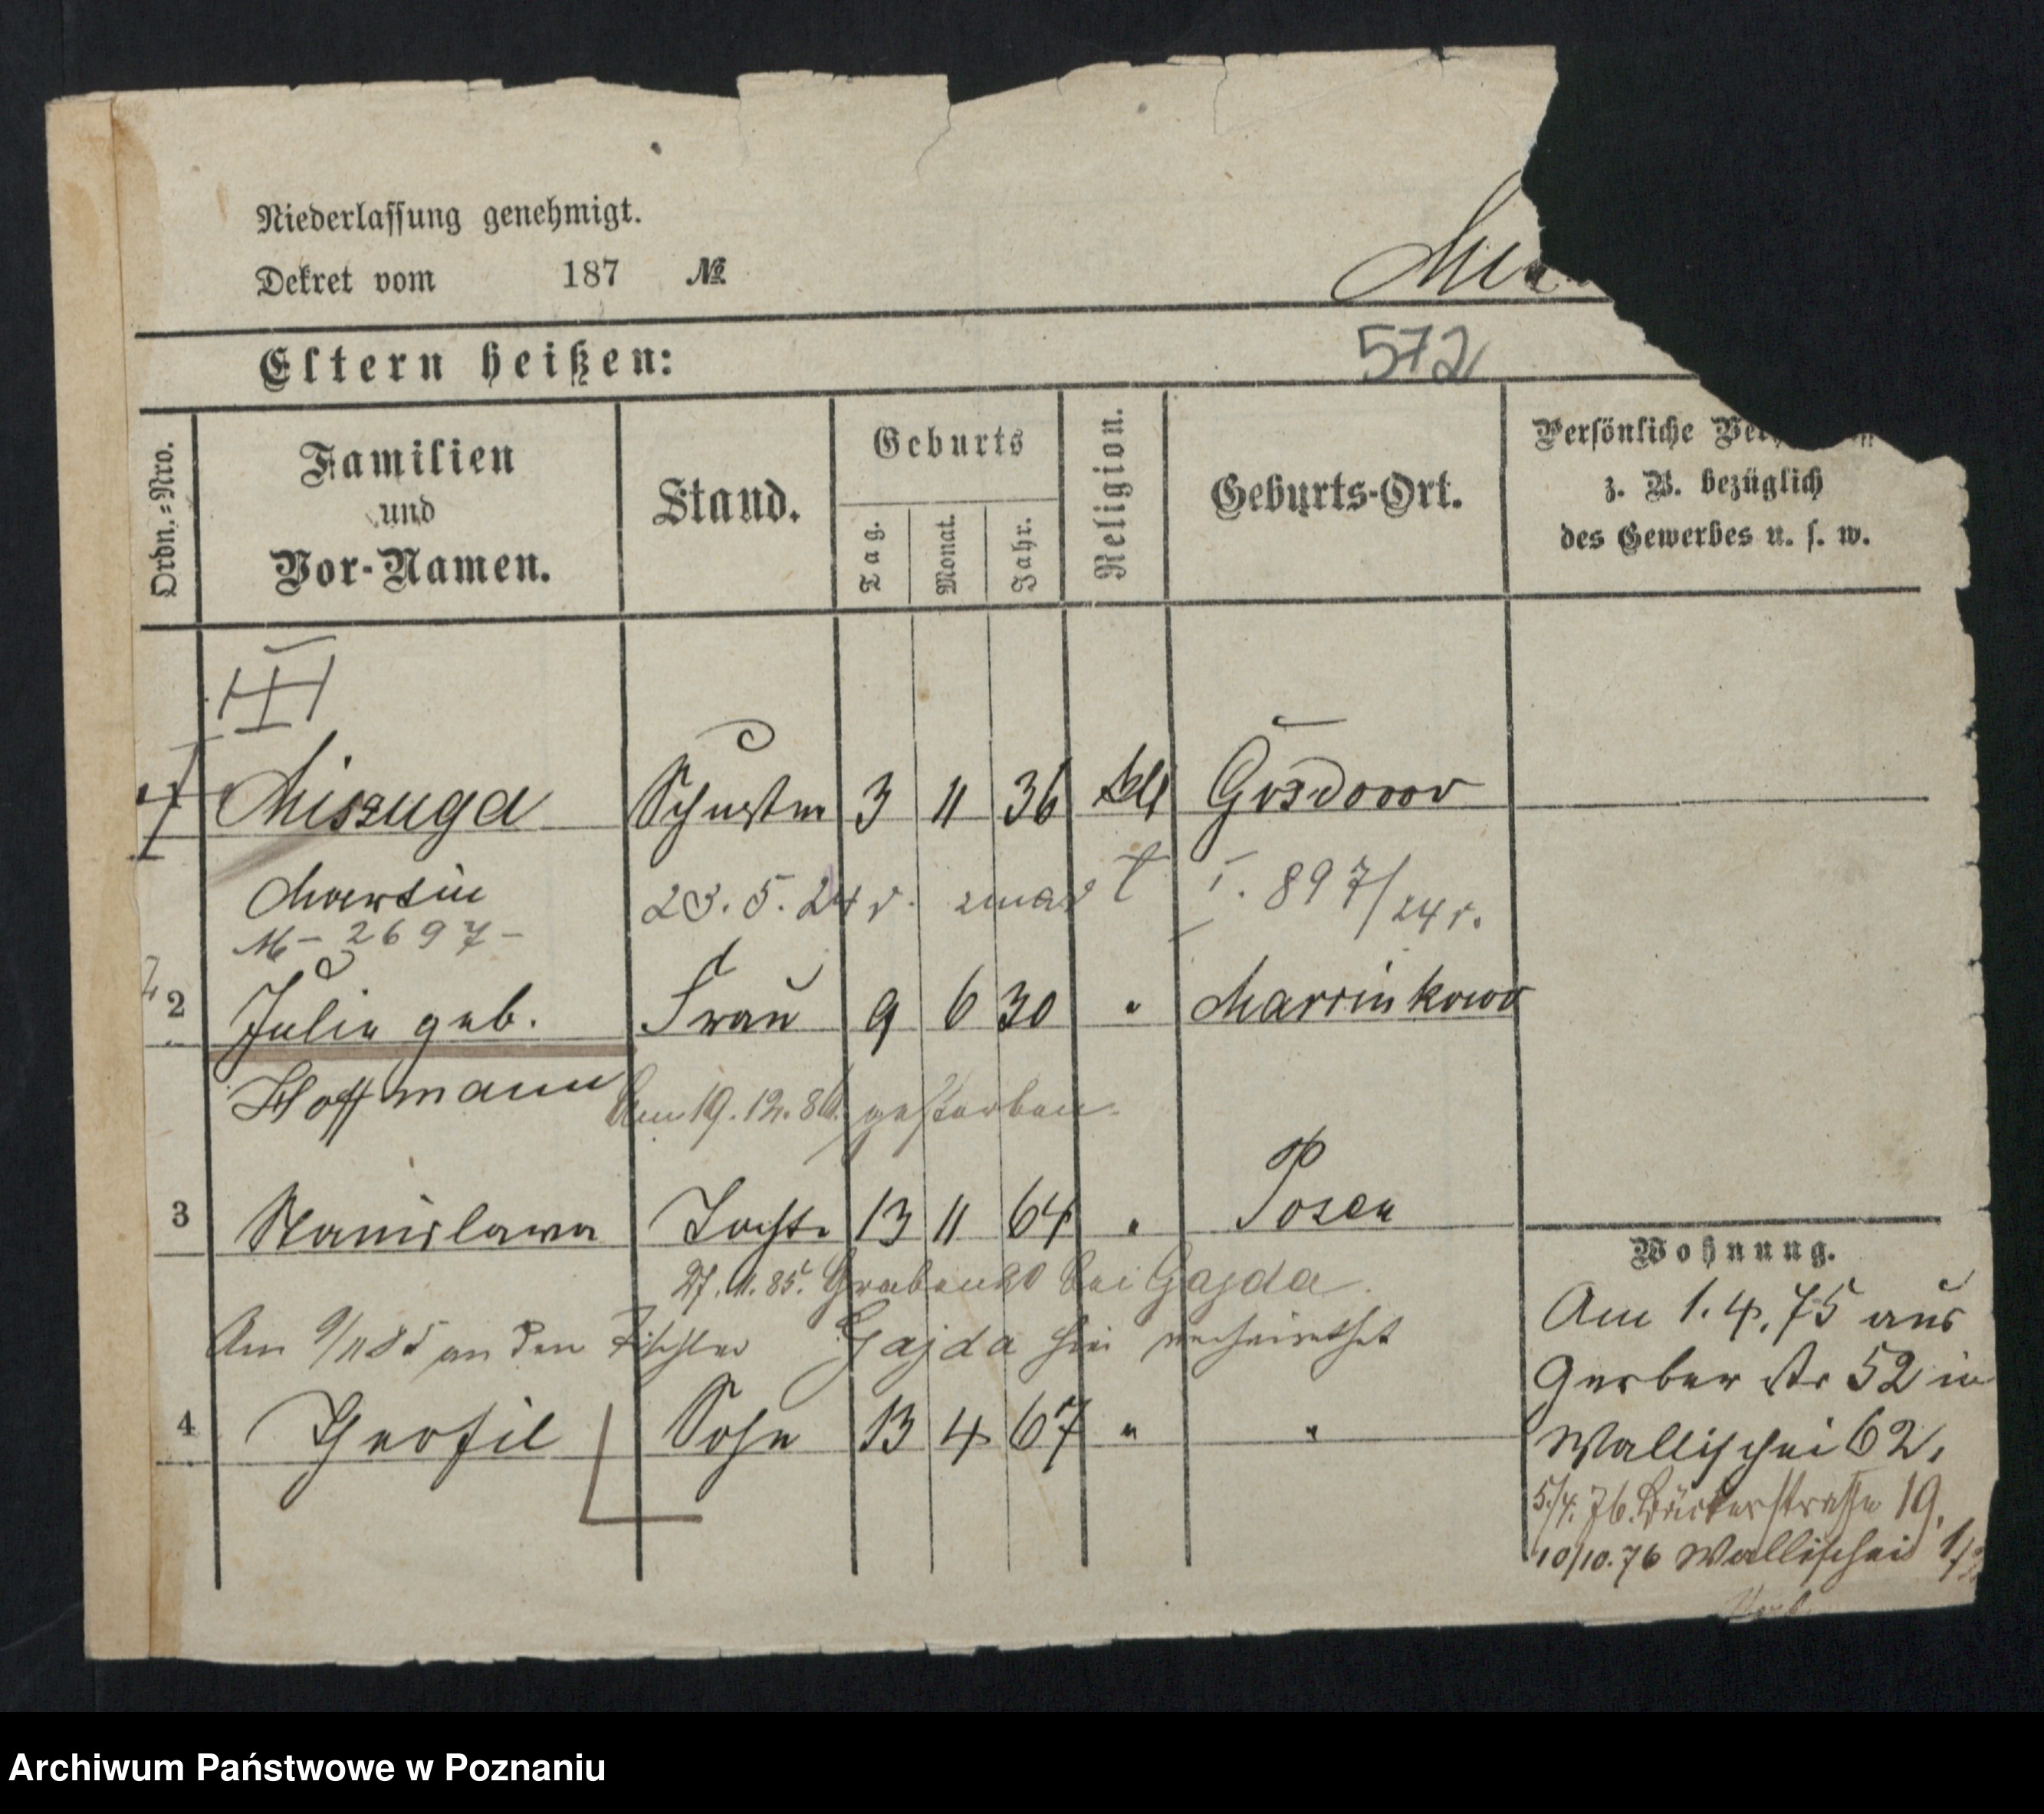 Niederlassung genehmigt.
Dekret vom 187 №
572
Eltern heißen:
Ordn.=Nro.
Familien
und
Vor-Namen.
Stand.
Geburts
Tag.
Monat.
Jahr.
Religion.
Geburts-Ort.
Persönliche
z. B. bezüglich
des Gewerbes u. s. w.
III
Miszuga Schuster 3 11 36 kth
Martin 23. 5. 24 r. zmarł I. 897/24 r.
M- 2697-
2 Julie geb. Frau 9 6 30 "
Hoffmann Am 19.12. gestorben.
3 Stanislawa Tochter 13 11 64 " Posen
27.11.85. Graben 20 bei Gajda.
Am 9/11 85 an den Tischler Gajda hier verheirathet
4 Theofil Sohn 13 4 67 " "
Wohnung.
Am 1.4.75 aus
Gerber str 52 in
Wallischei 62.
5/4. 76. Bäckerstraße 19.
10/10.76 Wallischei
Archiwum Państwowe w Poznaniu